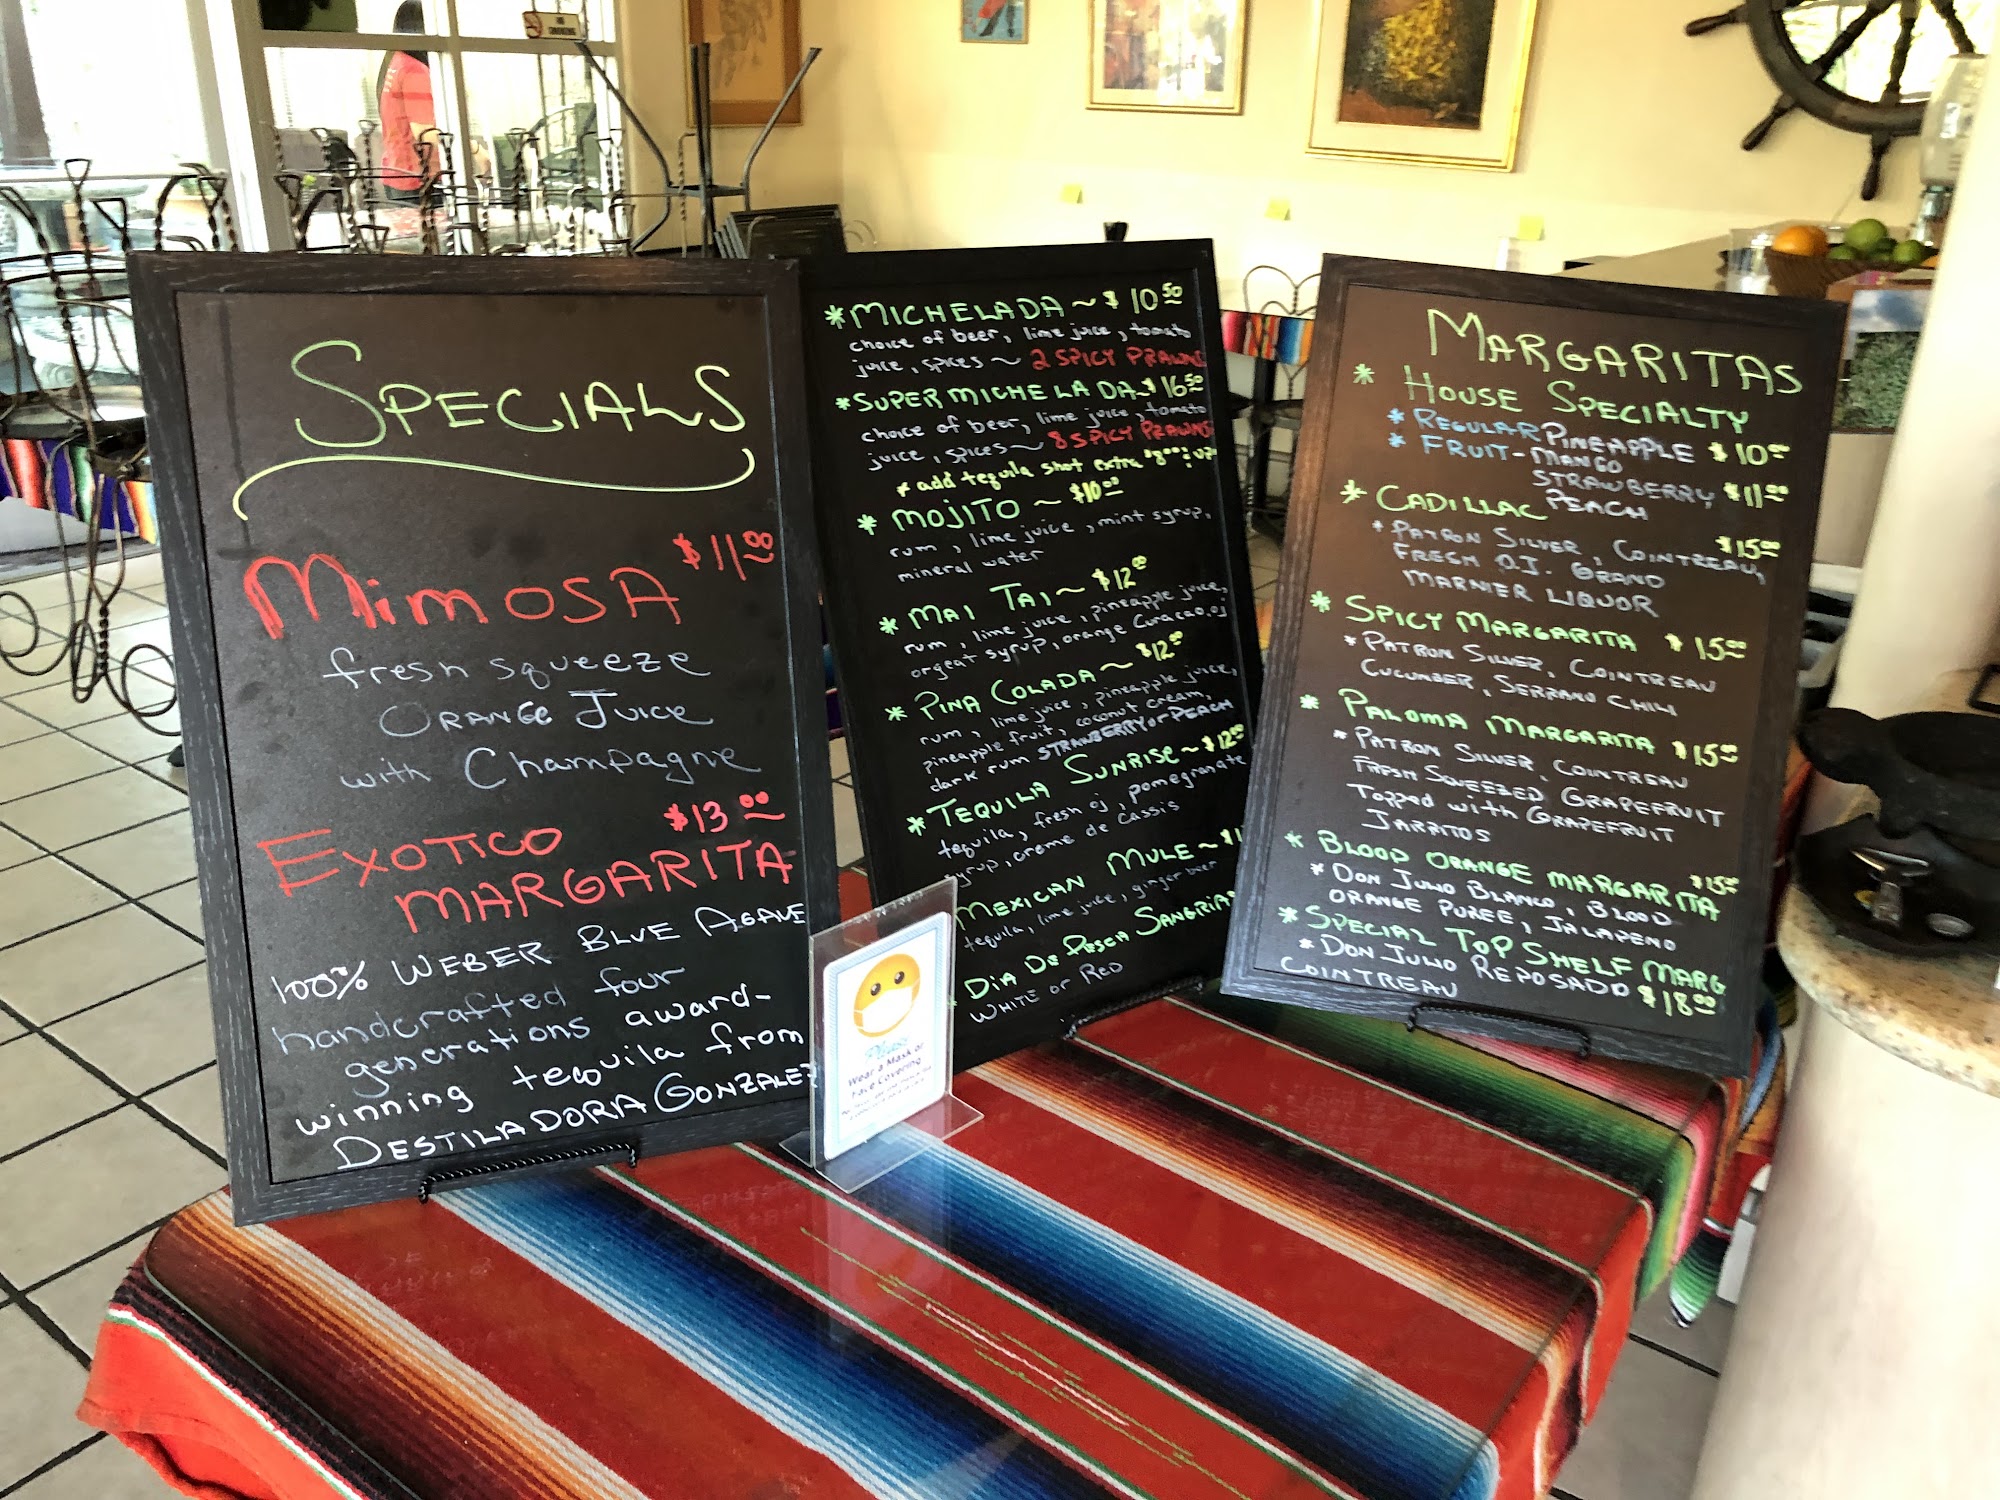 NO
SMOKING
SPECIALS
MimOSA $11.00
fresh squeeze
ORANGE JUICE
with Champagne
EXOTICO $13.00
MARGARITA
100% WEBER BLUE AGAVE
handcrafted four
generations award-
winning tequila from
DESTILADORIA GONZALEZ
* MICHELADA ~ $10.50
choice of beer, lime juice, tomato
juice, spices ~ 2 SPICY PRAWNS
* SUPER MICHELADA ~ $16.50
choice of beer, lime juice, tomato
juice, spices ~ 8 SPICY PRAWNS
* add tequila shot extra $8.00
* MOJITO ~ $10.00
rum, lime juice, mint syrup,
mineral water
* MAI TAI ~ $12.00
rum, lime juice, pineapple juice,
orgeat syrup, orange Curacao, oj
* PINA COLADA ~ $12.00
rum, lime juice, pineapple juice,
pineapple fruit, coconut cream,
dark rum STRAWBERRY or PEACH
* TEQUILA SUNRISE ~ $12.00
tequila, fresh oj, pomegranate
syrup, creme de cassis
MEXICAN MULE ~ $1
tequila, lime juice, ginger beer
* DIA DE PESCA SANGRIAS
WHITE or RED
MARGARITAS
* HOUSE SPECIALTY
* REGULAR PINEAPPLE $10.00
* FRUIT - MANGO
STRAWBERRY, $11.00
PEACH
* CADILLAC $15.00
* PATRON SILVER, COINTREAU,
FRESH O.J. GRAND
MARNIER LIQUOR
* SPICY MARGARITA $15.00
* PATRON SILVER, COINTREAU
CUCUMBER, SERRANO CHILI
* PALOMA MARGARITA $15.00
* PATRON SILVER, COINTREAU
FRESH SQUEEZED GRAPEFRUIT
Topped with GRAPEFRUIT
JARRITOS
* BLOOD ORANGE MARGARITA $15.00
* DON JULIO BLANCO, BLOOD
ORANGE PUREE, JALAPENO
* SPECIAL TOP SHELF MARG
* DON JULIO REPOSADO $18.00
COINTREAU
Please
Wear a Mask or
Face Covering